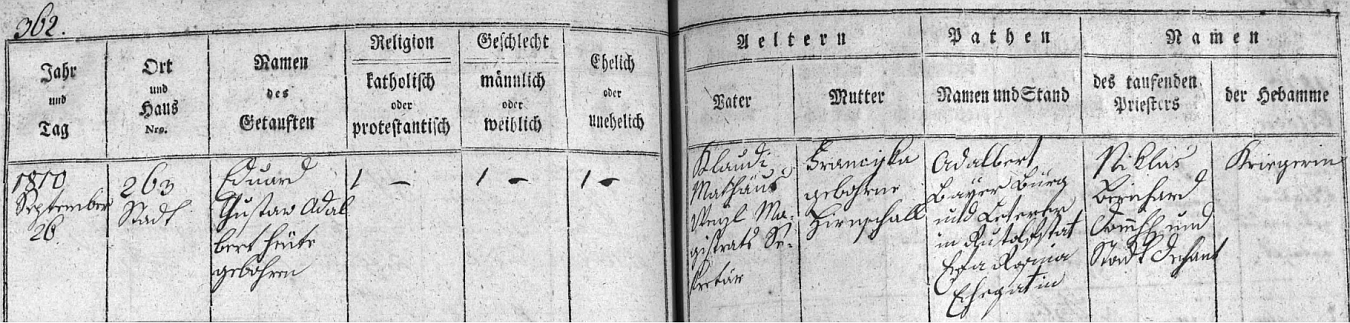 362.
Jahr
und
Tag
Ort
und
Haus
Nro.
Namen
des
Getauften
Religion
katholisch
oder
protestantisch
Geschlecht
männlich
oder
weiblich
Ehelich
oder
unehelich
Aeltern
Vater
Mutter
Pathen
Namen und Stand
Namen
des taufenden
Priesters
der Hebamme
1810
September
26.
263
Stadt
Eduard
Gustav Adal
bert heute
gebohren
1 –
1 –
1 –
Klaudi
Mathäus
Wenzl Ma-
gistrats Se-
kretär
Franziska
gebohrne
Hirnschall
Adalbert
Bayer Bürg
und
in
Rosina
Ehegatin
Niklas
und
Stadt Dechant
Kriegerin